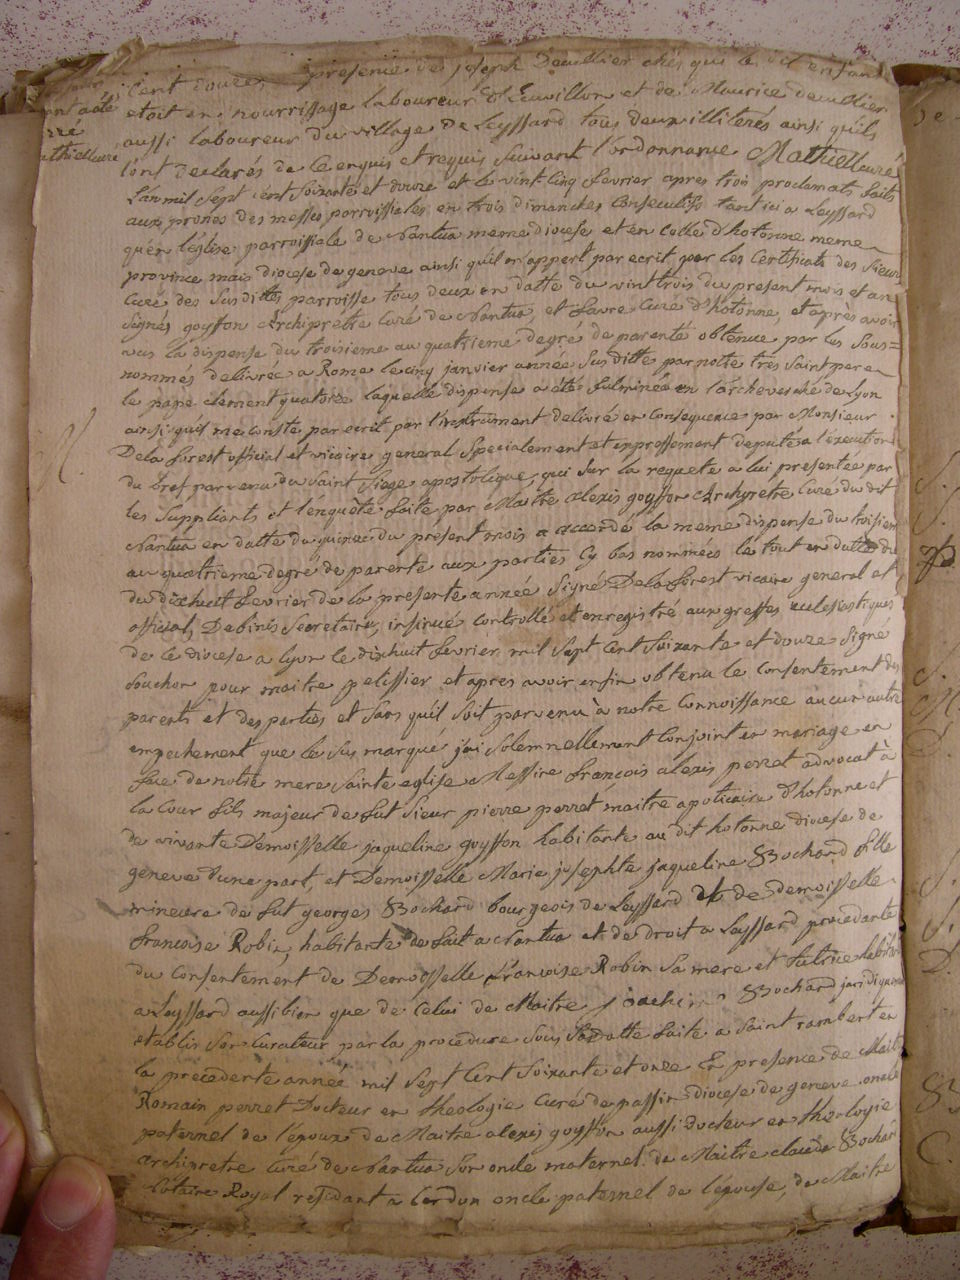 cent douze, presence de joseph Deaublier chés qui le dit enfant
etoit en nourrissage laboureur d'Euvillon et de Maurice deaublier
aussi laboureur du village de Leyssard tous deux illiterés ainsi qu'ils
l'ont declarés de ce enquis et requis suivant l'ordonnance Mathieu curé
L'an mil sept cent soixante et douze et le vint cinq fevrier apres trois proclamats faits
aux prones des messes parroissiales en trois dimanches consecutifs tant ici a Leyssard
qu'en l'eglise parroissiale de Nantua meme diocese et en celle d'hotonne meme
province mais diocese de geneve ainsi qu'il en appert par ecrit par les certificats des sieurs
curé des susdittes parroisse tous deux en datte du vint trois du present mois et an
signés goyffon Archiprêtre curé de Nantua, et favre curé d'hotonne, et après avoir
vus la dispense du troisieme au quatrieme degré de parenté obtenue par les sous=
nommés delivrée a Rome le cinq janvier année susditte par notre très saint pere
le pape clement quatorze laquelle dispense a été fulminée en l'archeveché de Lyon
ainsi qu'il me conste par ecrit par l'instrument delivré en consequence par Monsieur
De la forest official et vicaire general specialement et expressement deputé a l'execution
du bref parvenu du saint siege apostolique, qui sur la requete a lui presentée par
les suppliants et l'enquete faite par Maitre alexis goyffon Archypretre curé du dit
Nantua en datte du quinze du present mois a accordé la meme dispense du troisieme
au quatrieme degré de parenté aux parties cy bas nommées le tout en datte du
du dixhuit fevrier de la presente année signé De la forest vicaire general et
official, Debinis secretaire, insinué controllé et enregistré aux greffes ecclesiastiques
de ce diocese a lyon le dixhuit fevrier mil sept cent soixante et douze signé
souchon pour maitre pelissier et apres avoir enfin obtenu le consentement des
parents et des parties et sans qu'il soit parvenu à notre connoissance aucun autre
empechement que le sus marqué j'ai solemnellement conjoint en mariage en
face de notre mere sainte eglise Messire françois alexis perret advocat à
la cour fils majeur de fut sieur pierre perret maitre apoticaire d'hotonne et
de vivante Demoisselle jaqueline goyffon habitante au dit hotonne diocese de
geneve d'une part, et Demoisselle Marie josephte jaqueline Bochard fille
mineure de fut georges Bochard bourgeois de Leyssard et de demoisselle
francoise Robin, habitante de fait a Nantua et de droit a Leyssard procedante
du consentement de Demoisselle francoise Robin sa mere et tutrice
a Leyssard aussi bien que de celui de Maitre joachim Bochard juridiquement
etabli son curateur par la procedure sous sa datte faite a saint rambert en
la precedente année mil sept cent soixante et onze En presence de Maitre
Romain perret Docteur en theologie curé de passin diocese de geneve oncle
paternel de l'epoux de Maitre alexis goyffon aussi docteur en theologie
archipretre curé de Nantua son oncle maternel. de Maitre claude Bochard
Notaire Royal residant a Cerdon oncle paternel de l'epouse, de Maitre